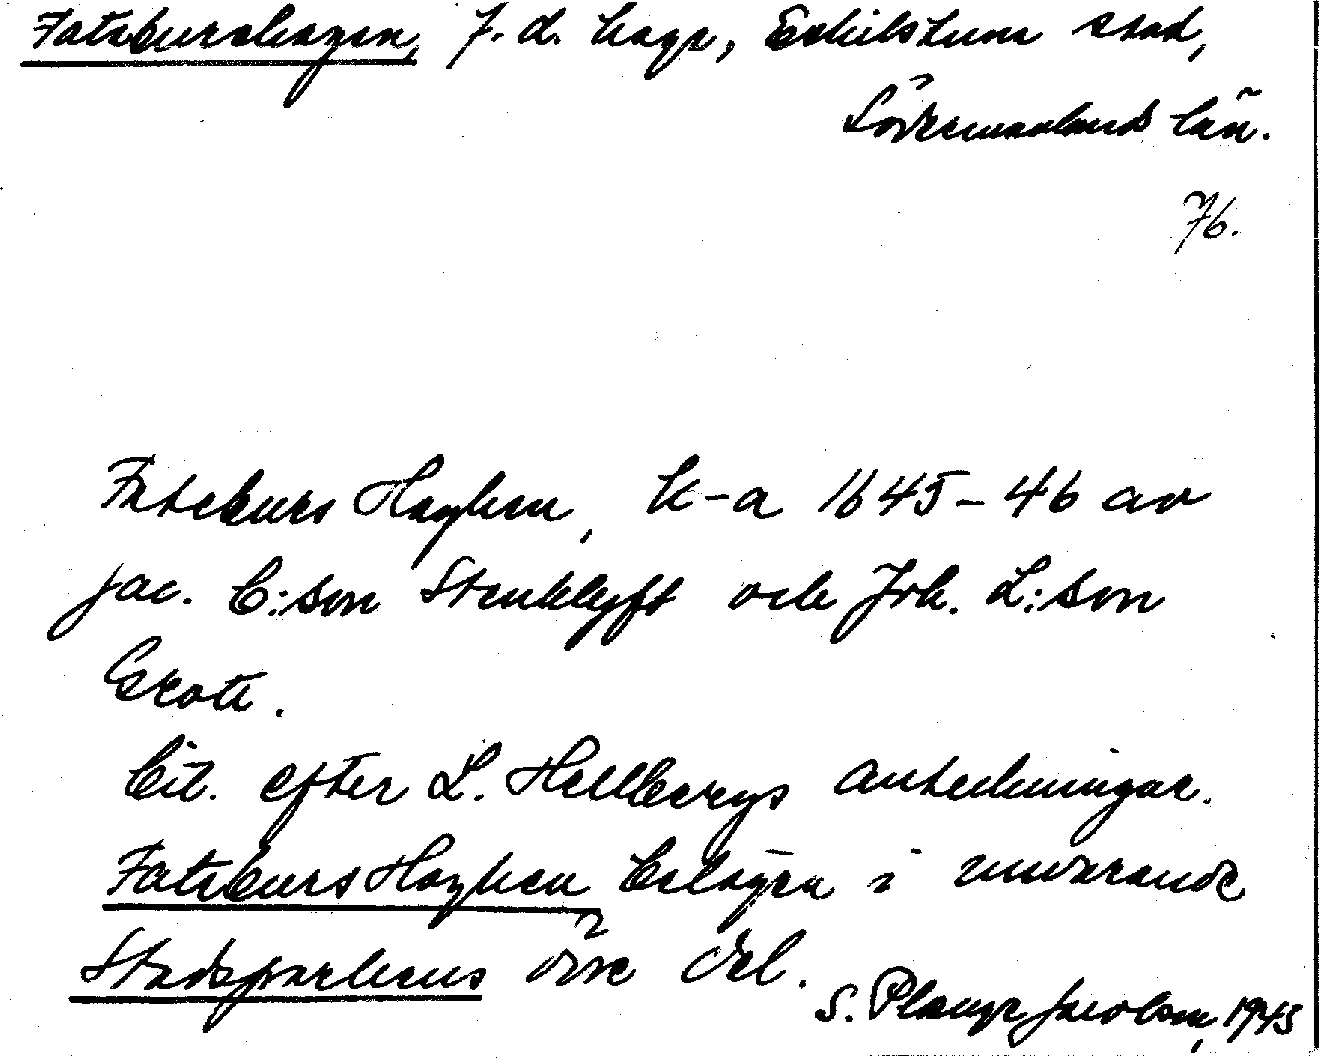 Fateburshagen, f. d. hage, Eskilstuna stad,
Södermanlands län.
76.
Fateburs Haghen, k-a 1645-46 av
Jac. C:son Stenklyft och Joh. L:son
Grote.
Cit. efter L. Hellbergs anteckningar.
Fateburs Haghen belägen i nuvarande
Stadsparkens övre del.
S. Plange Jacobson, 1945